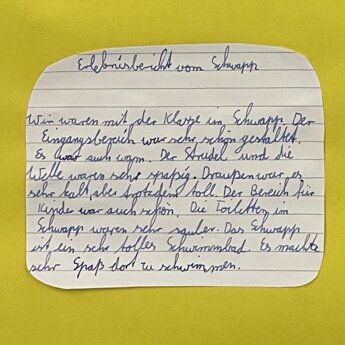 Erlebnisbericht vom Schwapp
Wir waren mit der Klasse im Schwapp. Der
Eingangsbereich war sehr schön gestaltet.
Es war auch warm. Der Strudel und die
Welle waren sehr spaßig. Draußen war es
sehr kalt, aber trotzdem toll. Der Bereich für
Kinder war auch schön. Die Toiletten im
Schwapp waren sehr sauber. Das Schwapp
ist ein sehr tolles Schwimmbad. Es machte
sehr Spaß dort zu schwimmen.